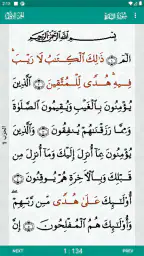 بِسْمِ ٱللَّهِ ٱلرَّحْمَٰنِ ٱلرَّحِيمِ
الٓمٓ ۝ ذَٰلِكَ ٱلْكِتَٰبُ لَا رَيْبَ ۛ
فِيهِ ۛ هُدًى لِّلْمُتَّقِينَ ۝ ٱلَّذِينَ
يُؤْمِنُونَ بِٱلْغَيْبِ وَيُقِيمُونَ ٱلصَّلَوٰةَ
وَمِمَّا رَزَقْنَٰهُمْ يُنفِقُونَ ۝ وَٱلَّذِينَ
يُؤْمِنُونَ بِمَآ أُنزِلَ إِلَيْكَ وَمَآ أُنزِلَ مِن
قَبْلِكَ وَبِٱلْءَاخِرَةِ هُمْ يُوقِنُونَ ۝
أُو۟لَٰٓئِكَ عَلَىٰ هُدًى مِّن رَّبِّهِمْ ۖ
وَأُو۟لَٰٓئِكَ هُمُ ٱلْمُفْلِحُونَ ۝
NEXT
1 : 134
PREV